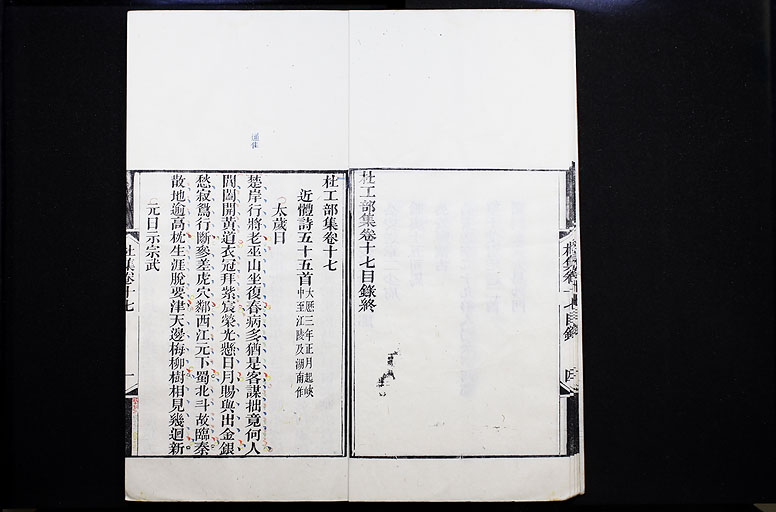 杜工部集卷十七目錄終
杜工部集卷十七
近體詩五十五首
大厯三年正月起峽
中至江陵及湖南作
太歲日
楚岸行將老巫山坐復春病多猶是客謀拙竟何人
閶闔開黃道衣冠拜紫宸榮光懸日月賜與出金銀
愁寂鴛行斷參差虎穴鄰西江元下蜀北斗故臨秦
散地逾高枕生涯脫要津天邊梅柳樹相見幾迴新
元日示宗武
杜集卷十七
一
杜集卷十七目錄
四